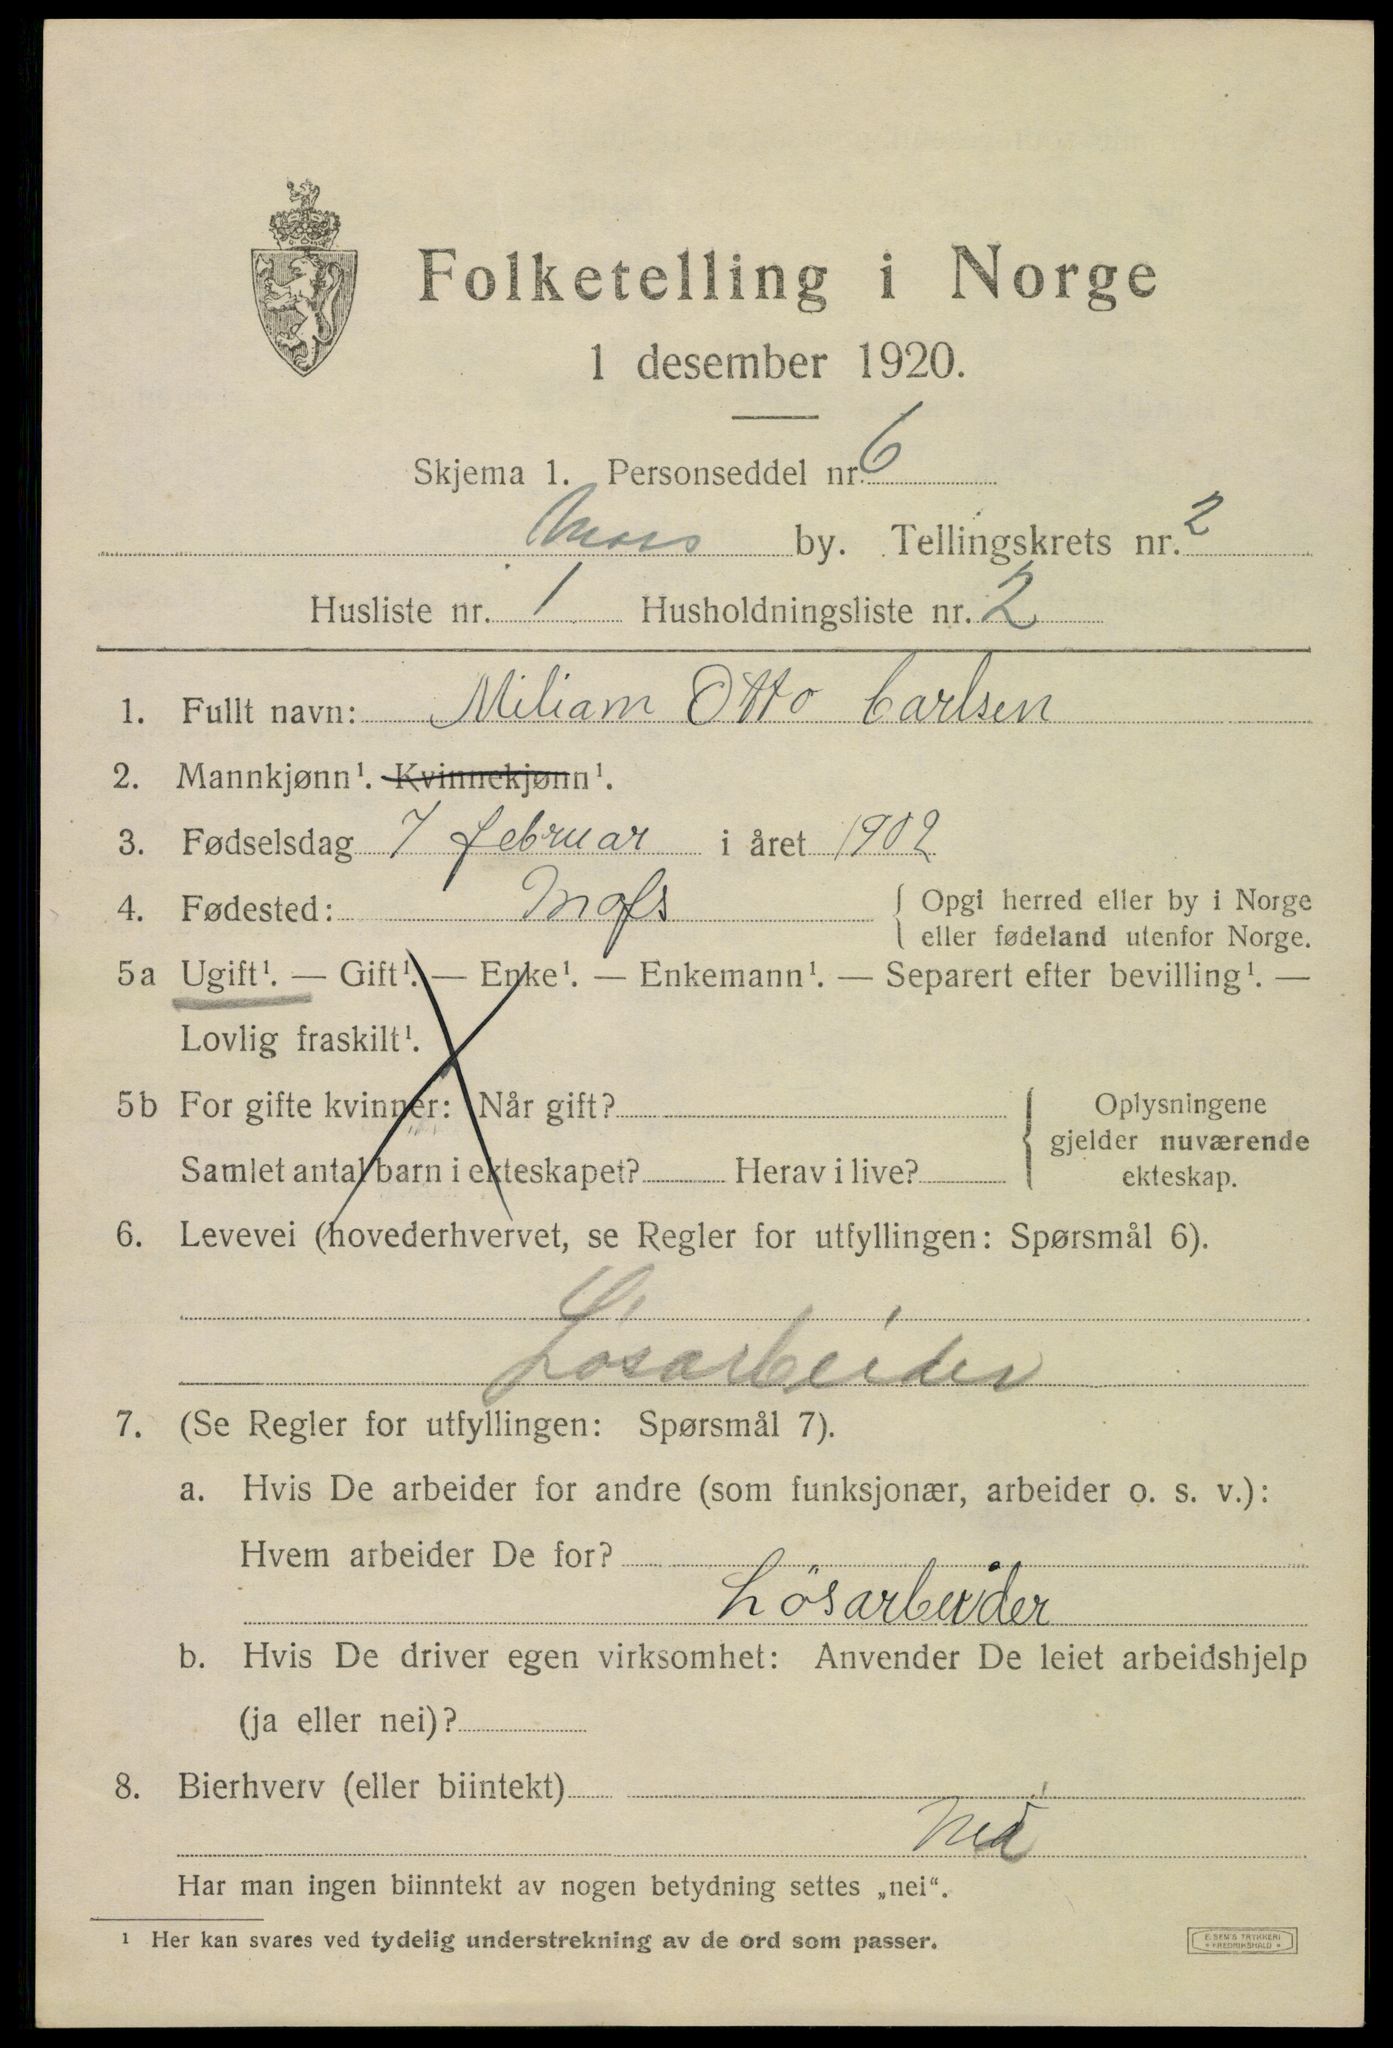 Folketelling i Norge
1 desember 1920.
Skjema 1. Personseddel nr. 6
Moss by. Tellingskrets nr. 2
Husliste nr. 1 Husholdningsliste nr. 2
1. Fullt navn: Miliam Otto Carlsen
2. Mannkjønn¹. Kvinnekjønn¹.
3. Fødselsdag 7 februar i året 1902
4. Fødested: Moss { Opgi herred eller by i Norge
eller fødeland utenfor Norge.
5a Ugift¹. — Gift¹. — Enke¹. — Enkemann¹. — Separert efter bevilling¹. —
Lovlig fraskilt¹.
5b For gifte kvinner: Når gift? { Oplysningene
gjelder nuværende
Samlet antal barn i ekteskapet? Herav i live? ekteskap.
6. Levevei (hovederhvervet, se Regler for utfyllingen: Spørsmål 6).
Løsarbeider
7. (Se Regler for utfyllingen: Spørsmål 7).
a. Hvis De arbeider for andre (som funksjonær, arbeider o. s. v.):
Hvem arbeider De for?
Lösarbeider
b. Hvis De driver egen virksomhet: Anvender De leiet arbeidshjelp
(ja eller nei)?
8. Bierhverv (eller biintekt)
Nei
Har man ingen biinntekt av nogen betydning settes „nei“.
¹ Her kan svares ved tydelig understrekning av de ord som passer.
E. SEM'S TRYKKERI
• FREDRIKSHALD •